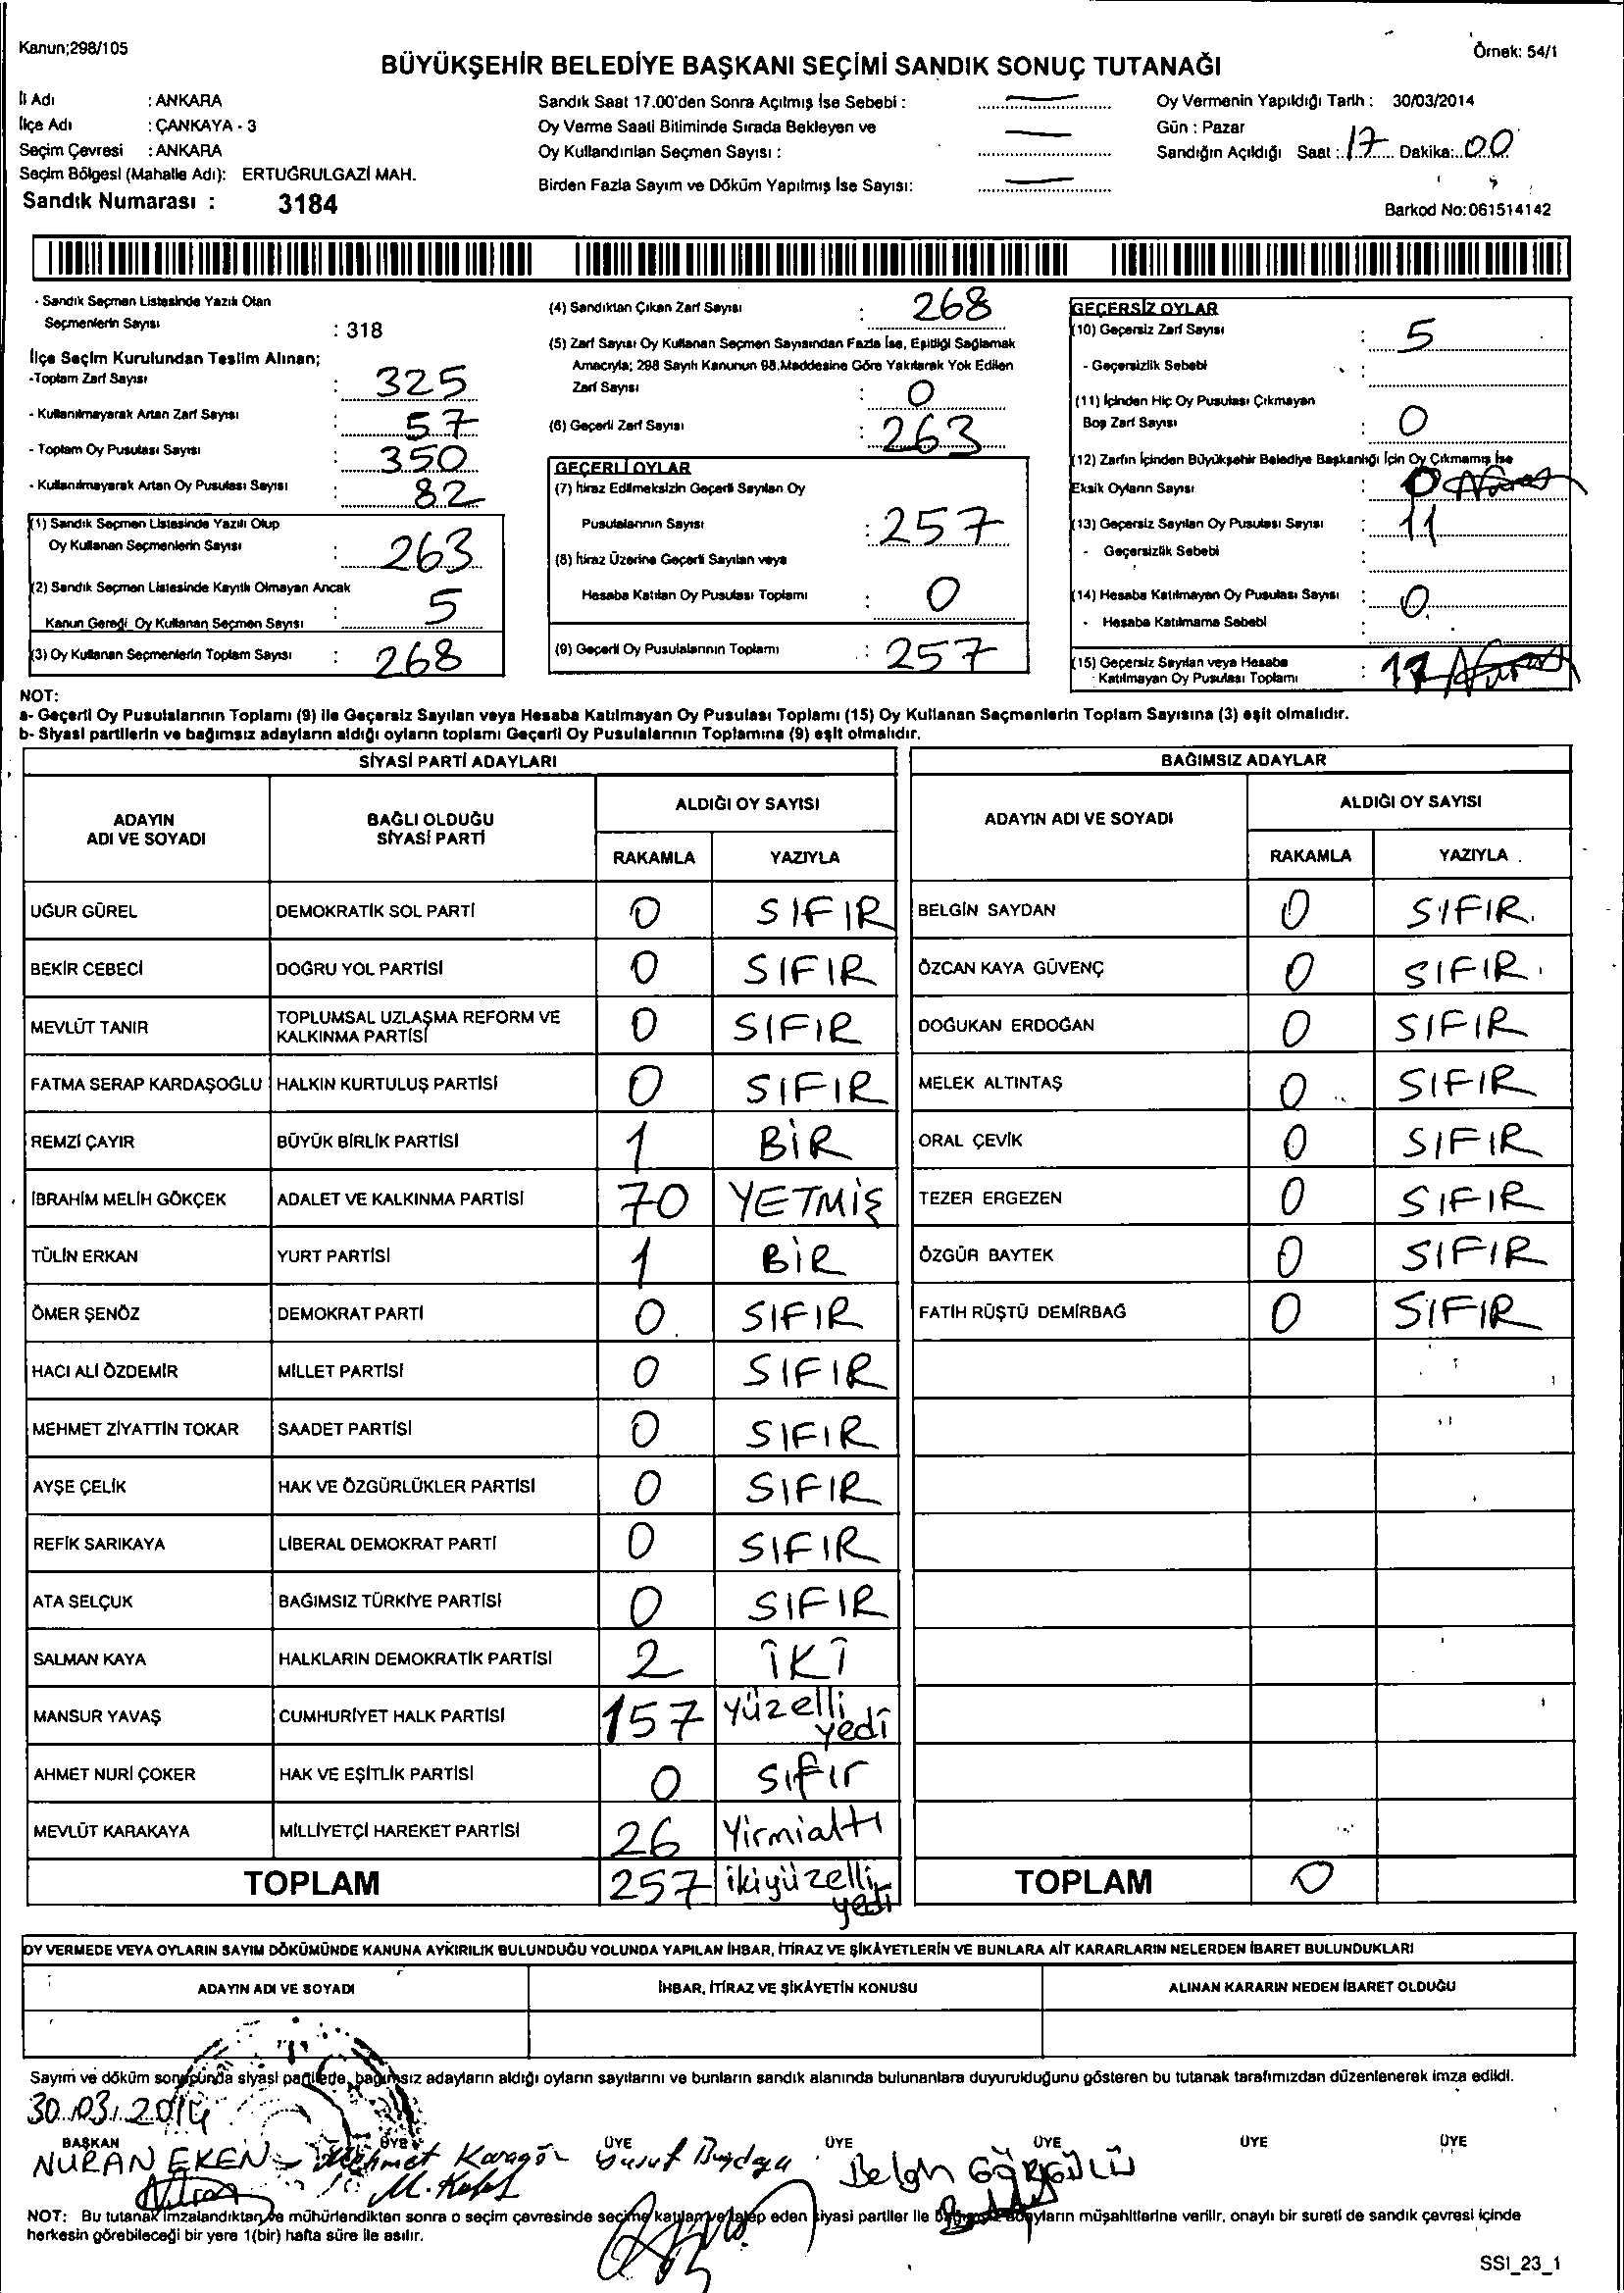 Kanun;298/105
Örnek: 54/1
BÜYÜKŞEHİR BELEDİYE BAŞKANI SEÇİMİ SANDIK SONUÇ TUTANAĞI
İl Adı : ANKARA
İlçe Adı : ÇANKAYA - 3
Seçim Çevresi : ANKARA
Seçim Bölgesi (Mahalle Adı): ERTUĞRULGAZİ MAH.
Sandık Numarası : 3184
Sandık Saat 17.00'den Sonra Açılmış İse Sebebi :
Oy Verme Saati Bitiminde Sırada Bekleyen ve
Oy Kullandırılan Seçmen Sayısı :
Birden Fazla Sayım ve Döküm Yapılmış İse Sayısı:
Oy Vermenin Yapıldığı Tarih : 30/03/2014
Gün : Pazar
Sandığın Açıldığı Saat : 17 Dakika: 00
Barkod No:061514142
- Sandık Seçmen Listesinde Yazılı Olan
Seçmenlerin Sayısı : 318
İlçe Seçim Kurulundan Teslim Alınan;
-Toplam Zarf Sayısı : 325
- Kullanılmayarak Artan Zarf Sayısı : 57
- Toplam Oy Pusulası Sayısı : 350
- Kullanılmayarak Artan Oy Pusulası Sayısı : 82
(1) Sandık Seçmen Listesinde Yazılı Olup
Oy Kullanan Seçmenlerin Sayısı : 263
(2) Sandık Seçmen Listesinde Kayıtlı Olmayan Ancak
Kanun Gereği Oy Kullanan Seçmen Sayısı : 5
(3) Oy Kullanan Seçmenlerin Toplam Sayısı : 268
(4) Sandıktan Çıkan Zarf Sayısı : 268
(5) Zarf Sayısı Oy Kullanan Seçmen Sayısından Fazla İse, Eşitliği Sağlamak
Amacıyla; 298 Sayılı Kanunun 98.Maddesine Göre Yakılarak Yok Edilen
Zarf Sayısı : 0
(6) Geçerli Zarf Sayısı : 263
GEÇERLİ OYLAR
(7) İtiraz Edilmeksizin Geçerli Sayılan Oy
Pusulalarının Sayısı : 257
(8) İtiraz Üzerine Geçerli Sayılan veya
Hesaba Katılan Oy Pusulası Toplamı : 0
(9) Geçerli Oy Pusulalarının Toplamı : 257
GEÇERSİZ OYLAR
(10) Geçersiz Zarf Sayısı : 5
- Geçersizlik Sebebi :
(11) İçinden Hiç Oy Pusulası Çıkmayan
Boş Zarf Sayısı : 0
(12) Zarfın İçinden Büyükşehir Belediye Başkanlığı İçin Oy Çıkmamış İse
Eksik Oyların Sayısı : 0
(13) Geçersiz Sayılan Oy Pusulası Sayısı : 11
- Geçersizlik Sebebi :
(14) Hesaba Katılmayan Oy Pusulası Sayısı : 0
- Hesaba Katılmama Sebebi :
(15) Geçersiz Sayılan veya Hesaba
Katılmayan Oy Pusulası Toplamı :
NOT:
a- Geçerli Oy Pusulalarının Toplamı (9) ile Geçersiz Sayılan veya Hesaba Katılmayan Oy Pusulası Toplamı (15) Oy Kullanan Seçmenlerin Toplam Sayısına (3) eşit olmalıdır.
b- Siyasi partilerin ve bağımsız adayların aldığı oyların toplamı Geçerli Oy Pusulalarının Toplamına (9) eşit olmalıdır.
SİYASİ PARTİ ADAYLARI BAĞIMSIZ ADAYLAR
ADAYIN ADI VE SOYADI BAĞLI OLDUĞU SİYASİ PARTİ ALDIĞI OY SAYISI ADAYIN ADI VE SOYADI ALDIĞI OY SAYISI
RAKAMLA YAZIYLA RAKAMLA YAZIYLA
UĞUR GÜREL DEMOKRATİK SOL PARTİ 0 SIFIR BELGİN SAYDAN 0 SIFIR.
BEKİR CEBECİ DOĞRU YOL PARTİSİ 0 SIFIR ÖZCAN KAYA GÜVENÇ 0 SIFIR.
MEVLÜT TANIR TOPLUMSAL UZLAŞMA REFORM VE KALKINMA PARTİSİ 0 SIFIR DOĞUKAN ERDOĞAN 0 SIFIR
FATMA SERAP KARDAŞOĞLU HALKIN KURTULUŞ PARTİSİ 0 SIFIR MELEK ALTINTAŞ 0 SIFIR
REMZİ ÇAYIR BÜYÜK BİRLİK PARTİSİ 1 BİR ORAL ÇEVİK 0 SIFIR
İBRAHİM MELİH GÖKÇEK ADALET VE KALKINMA PARTİSİ 70 YETMİŞ TEZER ERGEZEN 0 SIFIR
TÜLİN ERKAN YURT PARTİSİ 1 BİR ÖZGÜR BAYTEK 0 SIFIR
ÖMER ŞENÖZ DEMOKRAT PARTİ 0 SIFIR FATİH RÜŞTÜ DEMİRBAĞ 0 SIFIR
HACI ALİ ÖZDEMİR MİLLET PARTİSİ 0 SIFIR
MEHMET ZİYATTİN TOKAR SAADET PARTİSİ 0 SIFIR
AYŞE ÇELİK HAK VE ÖZGÜRLÜKLER PARTİSİ 0 SIFIR
REFİK SARIKAYA LİBERAL DEMOKRAT PARTİ 0 SIFIR
ATA SELÇUK BAĞIMSIZ TÜRKİYE PARTİSİ 0 SIFIR
SALMAN KAYA HALKLARIN DEMOKRATİK PARTİSİ 2 İKİ
MANSUR YAVAŞ CUMHURİYET HALK PARTİSİ 157 Yüzelli yedi
AHMET NURİ ÇOKER HAK VE EŞİTLİK PARTİSİ 0 Sıfır
MEVLÜT KARAKAYA MİLLİYETÇİ HAREKET PARTİSİ 26 Yirmialtı
TOPLAM 257 ikiyüzelli yedi TOPLAM 0
OY VERMEDE VEYA OYLARIN SAYIM DÖKÜMÜNDE KANUNA AYKIRILIK BULUNDUĞU YOLUNDA YAPILAN İHBAR, İTİRAZ VE ŞİKÂYETLERİN VE BUNLARA AİT KARARLARIN NELERDEN İBARET BULUNDUKLARI
ADAYIN ADI VE SOYADI İHBAR, İTİRAZ VE ŞİKÂYETİN KONUSU ALINAN KARARIN NEDEN İBARET OLDUĞU
Sayım ve döküm sonucunda siyasi partilerle, bağımsız adayların aldığı oyların sayılarını ve bunların sandık alanında bulunanlara duyurulduğunu gösteren bu tutanak tarafımızdan düzenlenerek imza edildi.
30.03.2014
BAŞKAN ÜYE ÜYE ÜYE ÜYE ÜYE ÜYE
NURAN EKEN Mehmet Karagöz
NOT: Bu tutanak imzalandıktan ve mühürlendikten sonra o seçim çevresinde seçime katılan ve talep eden siyasi partiler ile bağımsız adayların müşahitlerine verilir, onaylı bir sureti de sandık çevresi içinde
herkesin görebileceği bir yere 1(bir) hafta süre ile asılır.
SSI_23_1